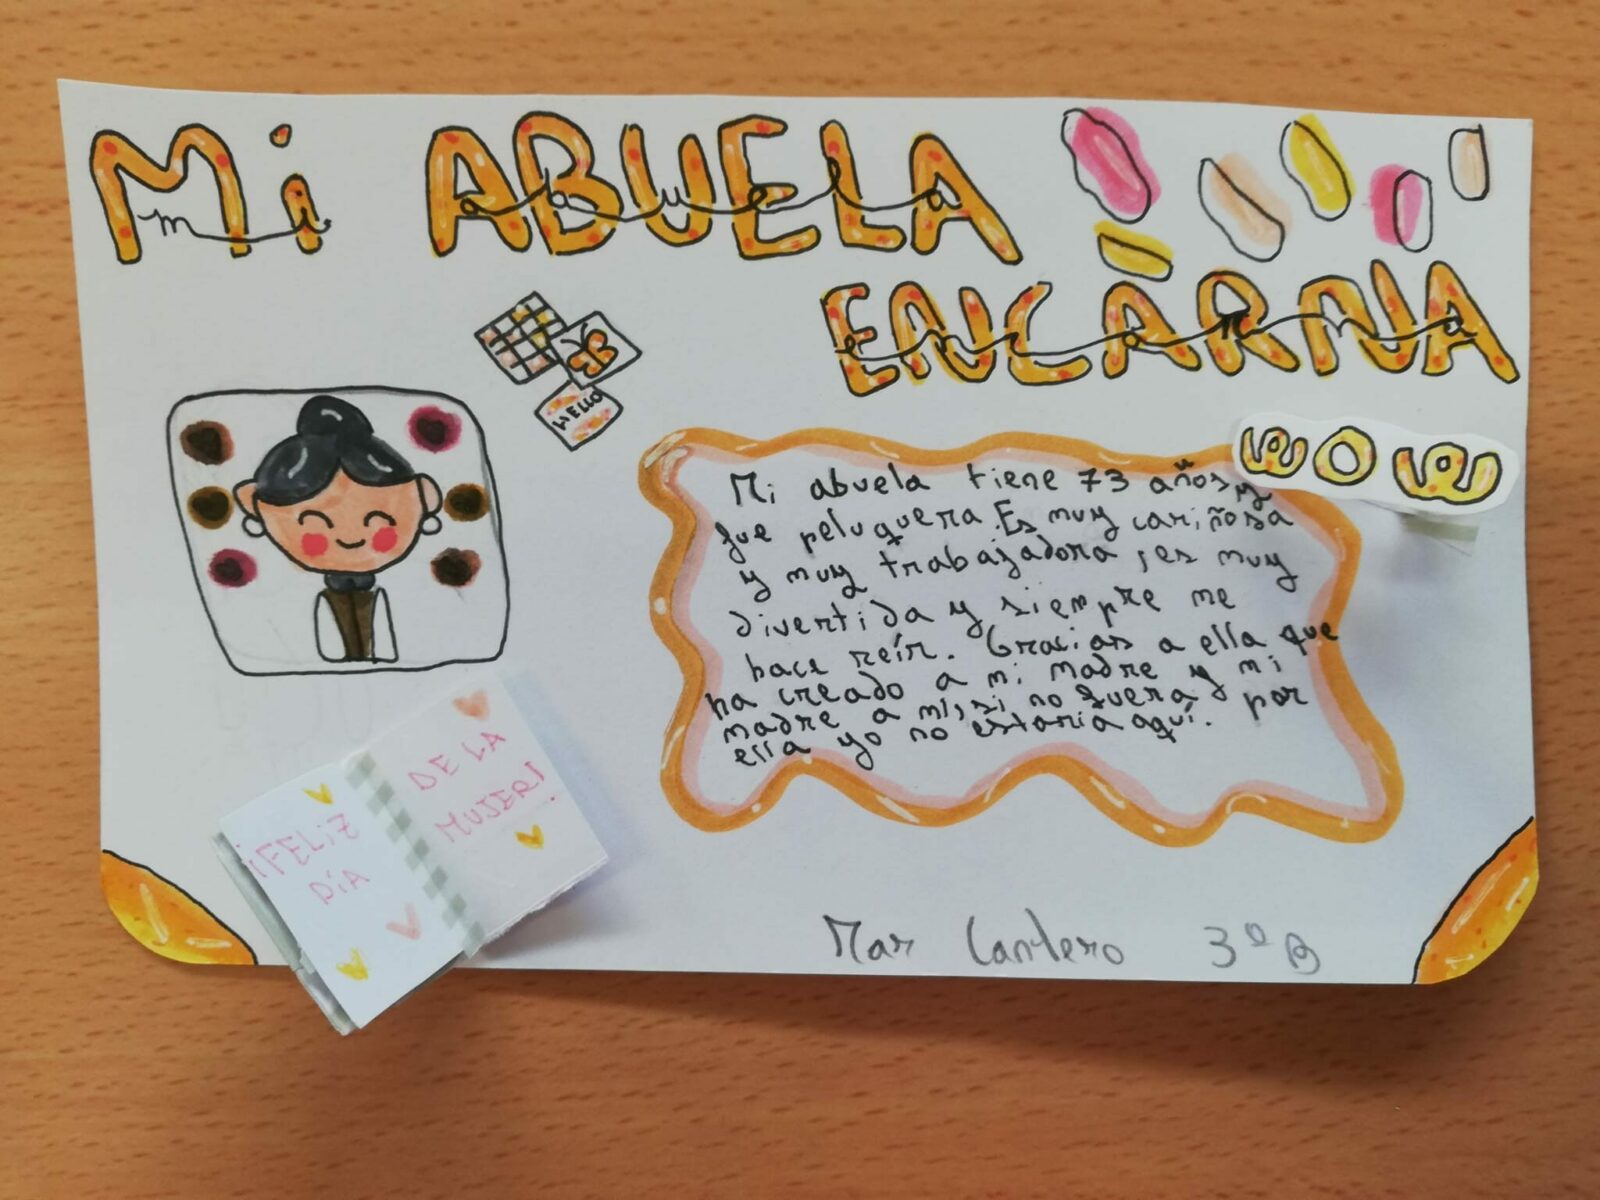 Mi ABUELA
mi abuela
ENCARNA
encarna
HELLO
WOW
Mi abuela tiene 73 años y
fue peluquera. Es muy cariñosa
y muy trabajadora, es muy
divertida y siempre me
hace reír. Gracias a ella que
ha creado a mi madre y mi
madre a mí, si no fuera por
ella yo no estaría aquí.
¡FELIZ
DÍA
DE LA
MUJER!
Mar Cantero 3º B